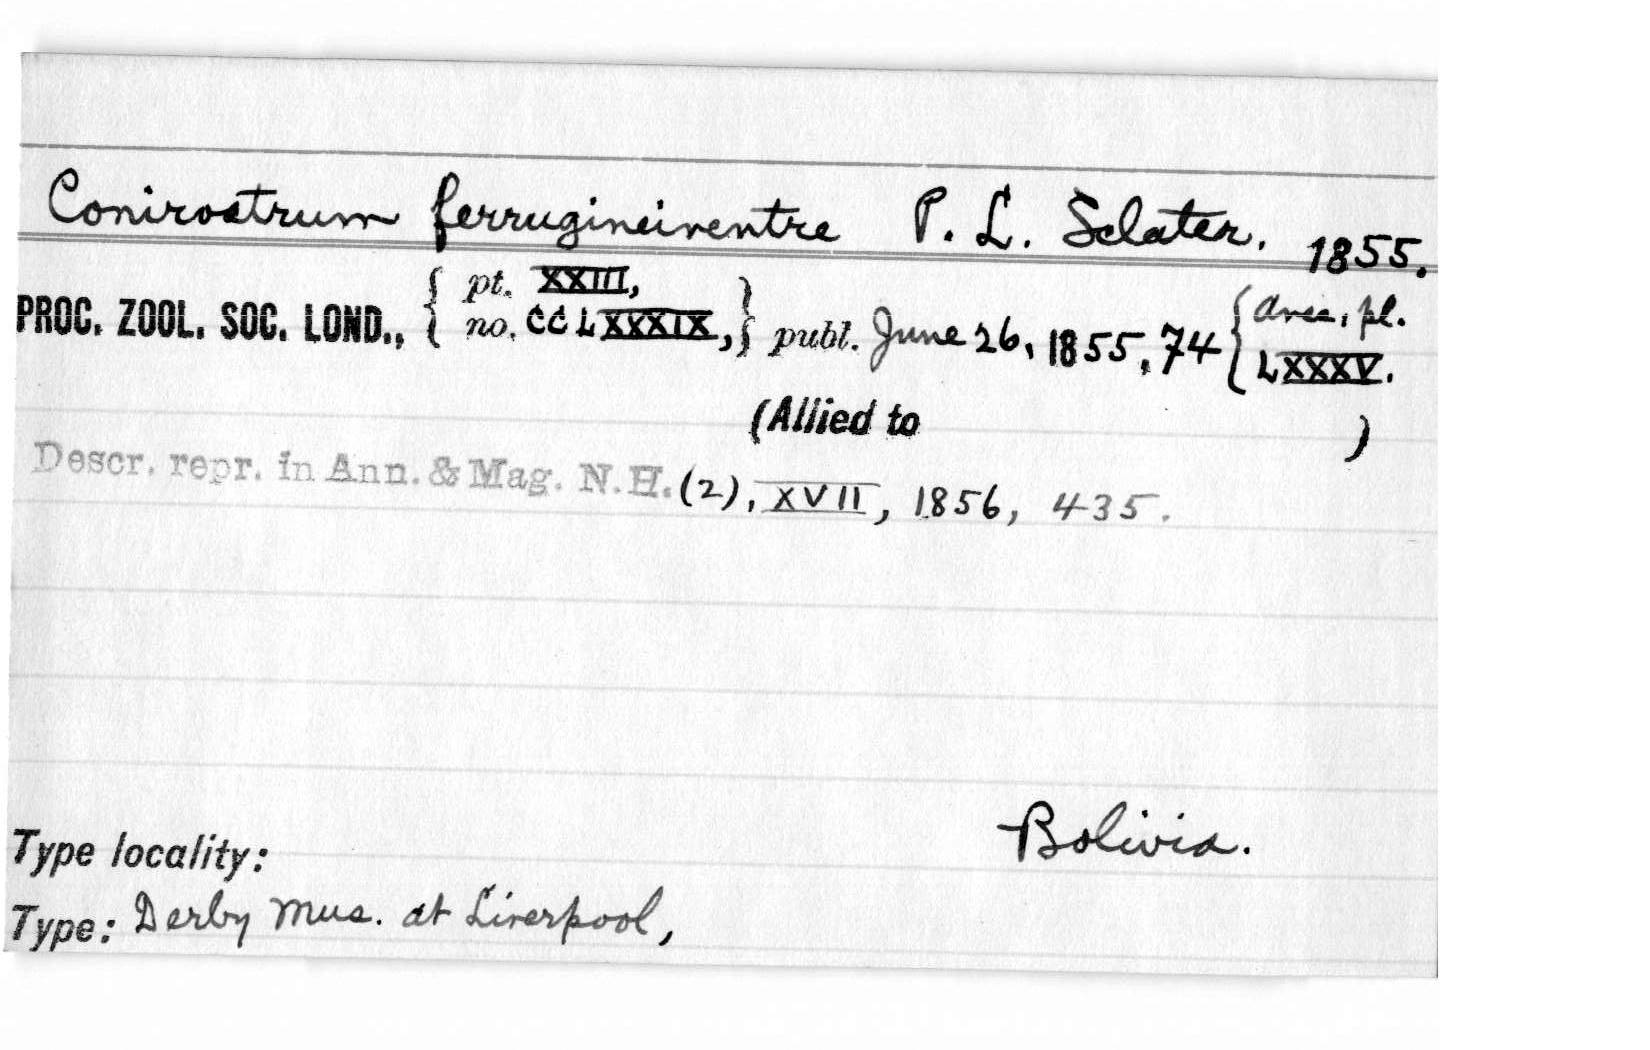 Conirostrum ferrugineiventre P. L. Sclater. 1855.
PROC. ZOOL. SOC. LOND., { pt. XXIII, no. CCLXXXIX, } publ. June 26, 1855, 74 { Aves, pl. LXXXV.
(Allied to )
Descr. repr. in Ann. & Mag. N.H. (2), XVII, 1856, 435.
Type locality: Bolivia.
Type: Derby Mus. at Liverpool,